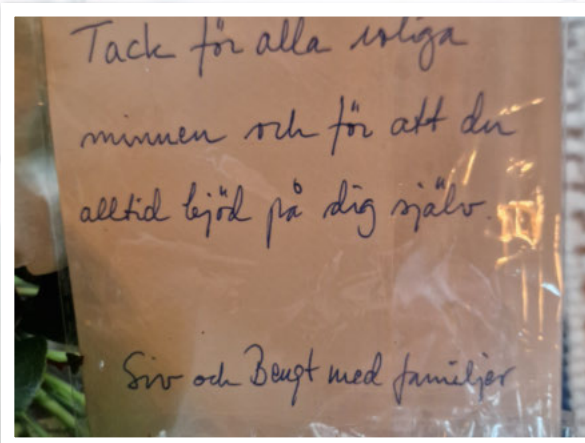 Tack för alla roliga
minnen och för att du
alltid bjöd på dig själv.
Siv och Bengt med familjer